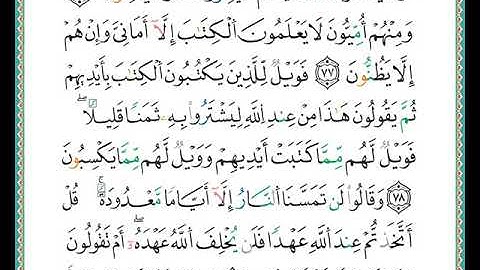 وَمِنْهُمْ أُمِّيُّونَ لَا يَعْلَمُونَ ٱلْكِتَٰبَ إِلَّآ أَمَانِىَّ وَإِنْ هُمْ
إِلَّا يَظُنُّونَ ٧٧ فَوَيْلٌ لِّلَّذِينَ يَكْتُبُونَ ٱلْكِتَٰبَ بِأَيْدِيهِمْ
ثُمَّ يَقُولُونَ هَٰذَا مِنْ عِندِ ٱللَّهِ لِيَشْتَرُوا۟ بِهِۦ ثَمَنًا قَلِيلًا ۖ
فَوَيْلٌ لَّهُم مِّمَّا كَتَبَتْ أَيْدِيهِمْ وَوَيْلٌ لَّهُم مِّمَّا يَكْسِبُونَ
٧٨ وَقَالُوا۟ لَن تَمَسَّنَا ٱلنَّارُ إِلَّآ أَيَّامًا مَّعْدُودَةً ۚ قُلْ
أَتَّخَذْتُمْ عِندَ ٱللَّهِ عَهْدًا فَلَن يُخْلِفَ ٱللَّهُ عَهْدَهُۥٓ ۖ أَمْ تَقُولُونَ